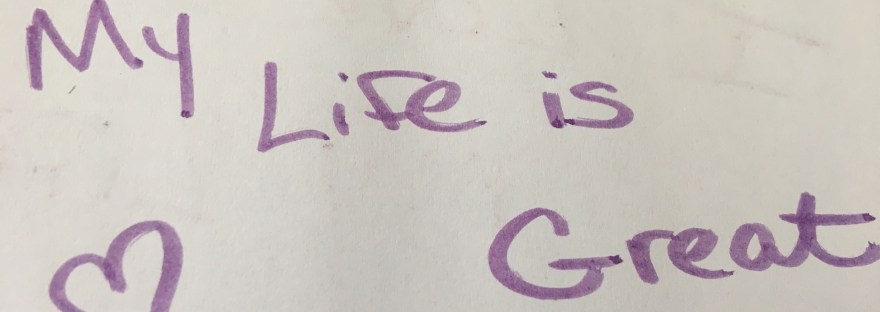 My
Life is
Great